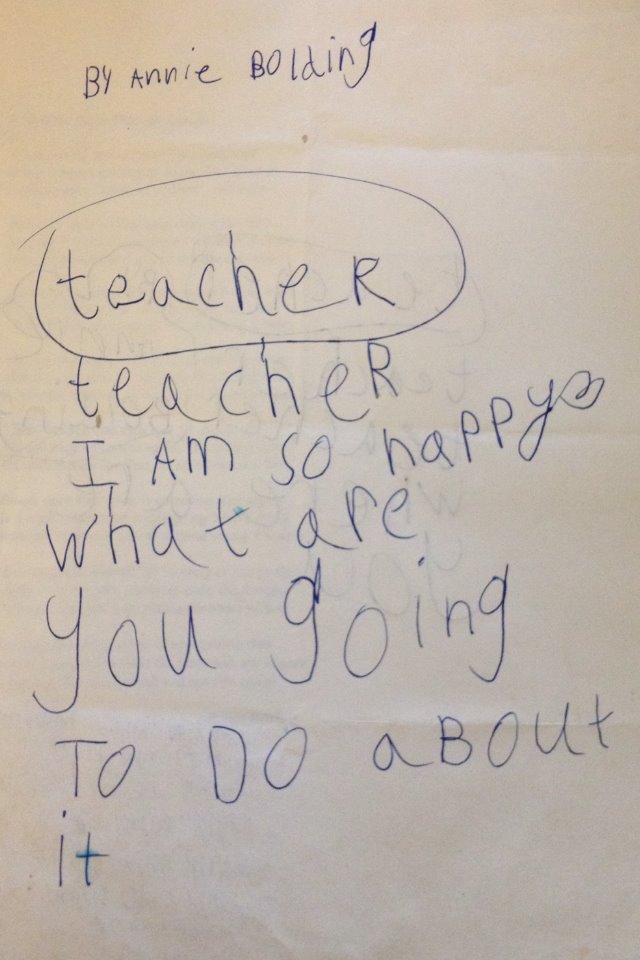 BY Annie BOlding
teacheR
teacheR
I AM SO happy
what are
you going
TO DO aBOUt
it